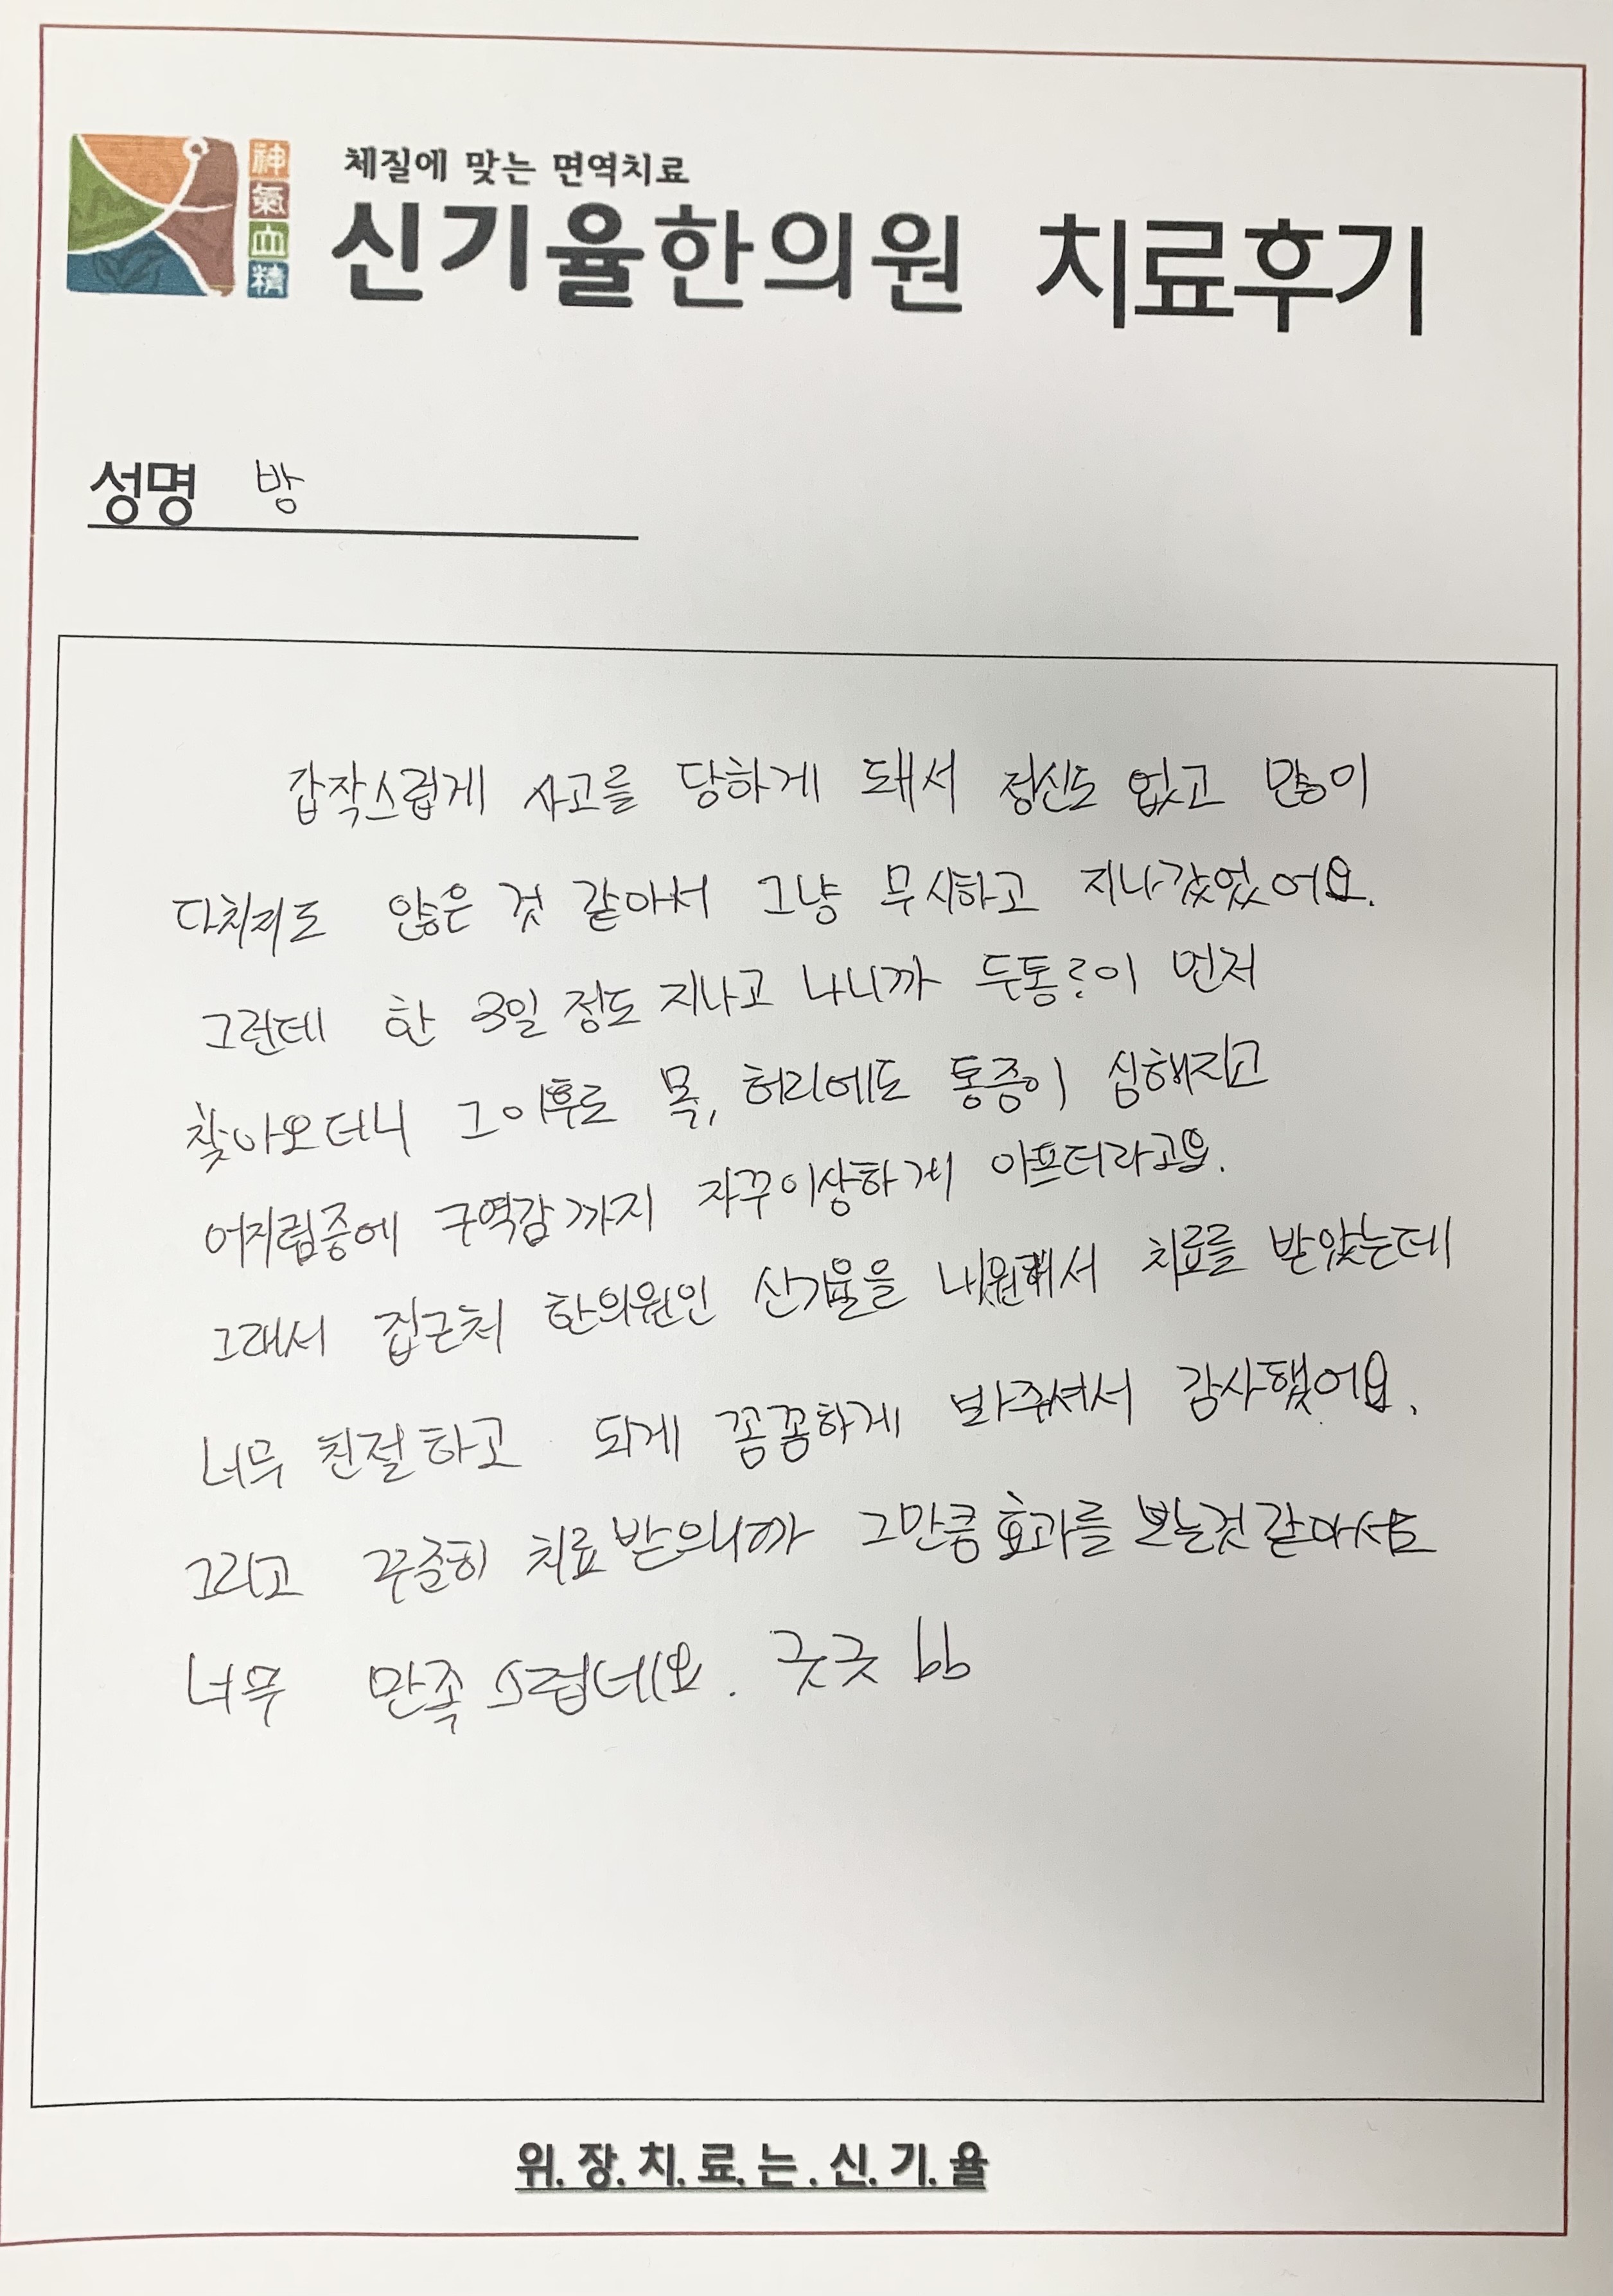 체질에 맞는 면역치료
神氣血精
신기율한의원 치료후기
성명 방
갑작스럽게 사고를 당하게 돼서 정신도 없고 많이
다치지도 않은 것 같아서 그냥 무시하고 지나갔었어요.
그런데 한 3일 정도 지나고 나니까 두통이 먼저
찾아오더니 그 이후로 목, 허리에도 통증이 심해지고
어지럼증에 구역감까지 자꾸 이상하게 아프더라고요.
그래서 집근처 한의원인 신기율을 내원해서 치료를 받았는데
너무 친절하고 되게 꼼꼼하게 봐주셔서 감사했어요.
그리고 꾸준히 치료 받으니까 그만큼 효과를 보는것 같아서도
너무 만족스럽네요. 굿굿 bb
위.장.치.료.는.신.기.율